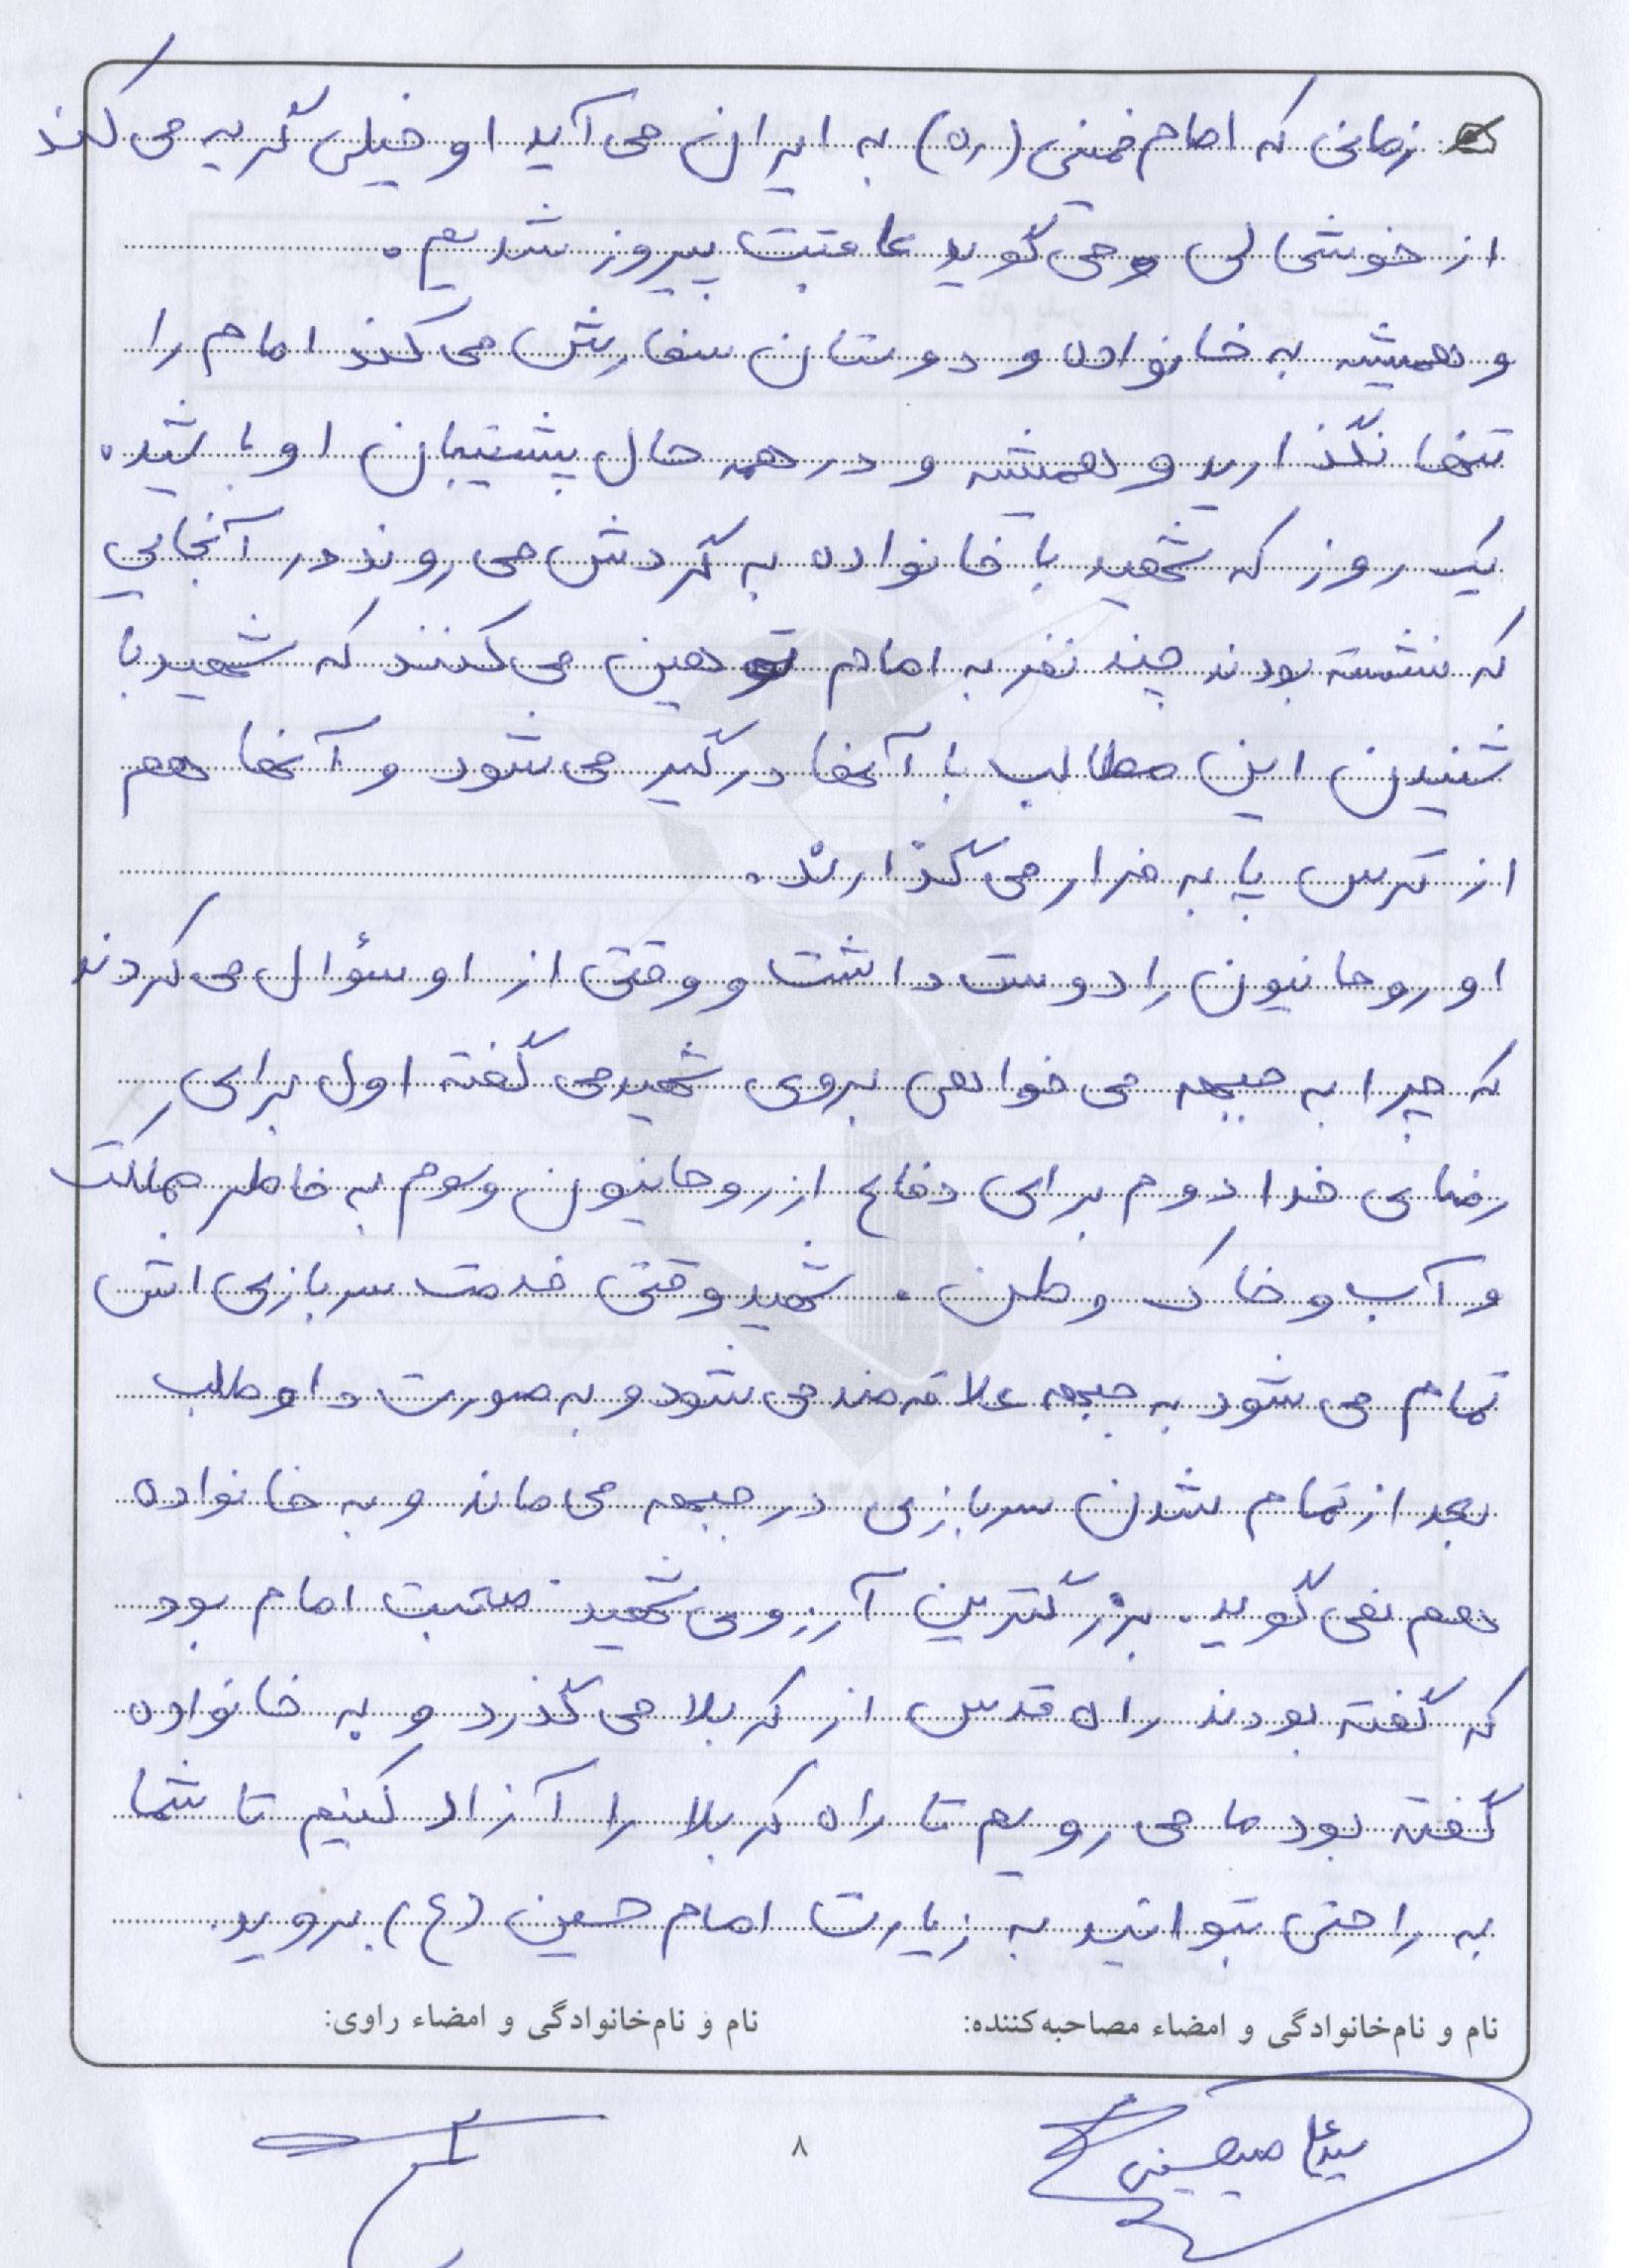 زمانی که امام خمینی (ره) به ایران می آید او خیلی گریه می کند
از خوشحالی و می گوید عاقبت پیروز شدیم.
و همیشه به خانواده و دوستان سفارش می کند امام را
تنها نگذارید و همیشه و در همه حال پشتیبان او باشید.
یک روز که شهید با خانواده به گردش می روند در آنجایی
که نشسته بودند چند نفر به امام توهین می کنند که شهید با
شنیدن این مطالب با آنها درگیر می شود و آنها هم
از ترس پا به فرار می گذارند.
او روحانیون را دوست داشت و وقتی از او سؤال می کردند
که چرا به جبهه می خواهی بروی شهید می گفته اول برای
رضای خدا دوم برای دفاع از روحانیون و سوم به خاطر مملکت
و آب و خاک وطن. شهید وقتی خدمت سربازی اش
تمام می شود به جبهه علاقه مند می شود و به صورت داوطلب
بعد از تمام شدن سربازی در جبهه می ماند و به خانواده
هم نمی گوید. بزرگترین آرزوی شهید صحبت امام بود
که گفته بودند راه قدس از کربلا می گذرد و به خانواده
گفته بود ما می رویم تا راه کربلا را آزاد کنیم تا شما
به راحتی بتوانید به زیارت امام حسین (ع) بروید.
نام و نام‌خانوادگی و امضاء مصاحبه‌کننده: نام و نام‌خانوادگی و امضاء راوی:
سید علی
۸